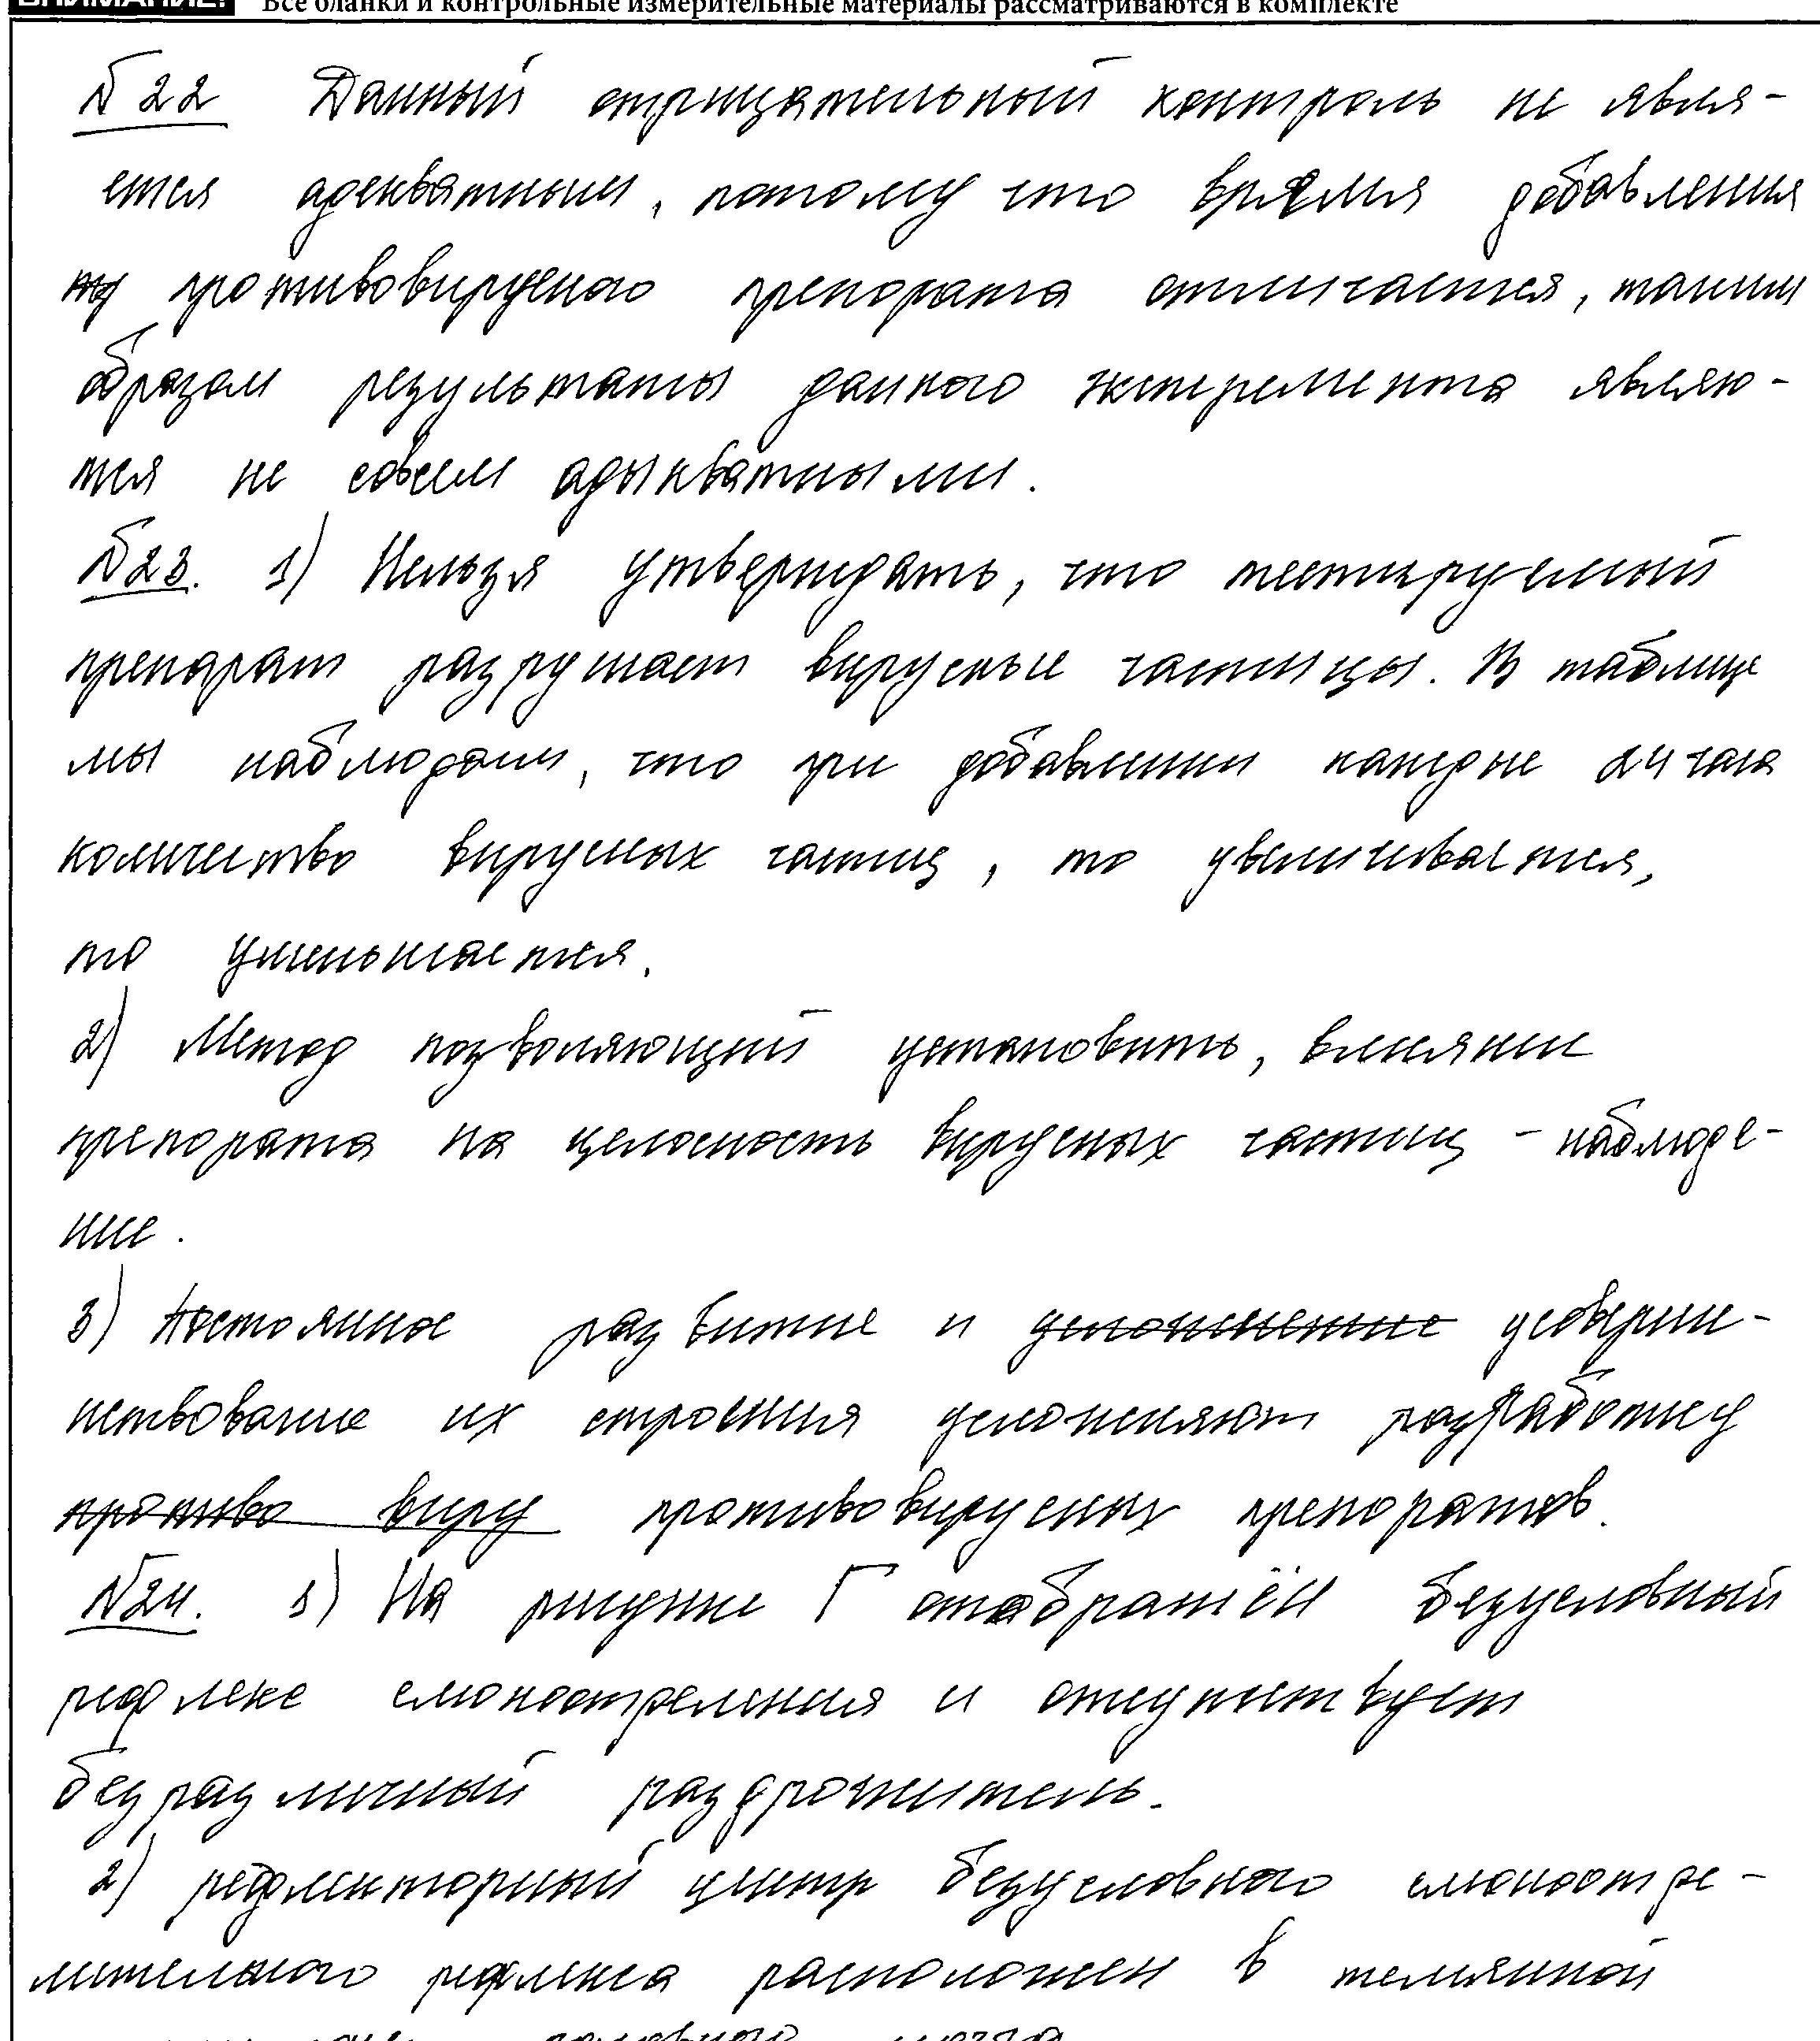 ВНИМАНИЕ! Все бланки и контрольные измерительные материалы рассматриваются в комплекте
№22 Данный отрицательный контроль не явля-
ется адекватным, потому что время добавления
противовирусного препората отличается, таким
образом результаты данного эксперемента являю-
тся не совсем адыкватными.
№23. 1) Нельзя утверждать, что тестируемый
препарат разрушает вирусные частицы. В таблице
мы наблюдаем, что при добавлении каждые 24 часа
количество вирусных частиц, то увеличивается,
то уменьшается.
2) Метод позволяющий установить, влияние
препората на целосность вирусных частиц - наблюде-
ние.
3) Постоянное развитие и усложнение усоверше-
нствование их строения усложняют разработку
противо виру противовирусных препоратов.
№24. 1) На рисунке Г отображён безусловный
рефлекс слюноотреления и отсутствует
безразличный раздрожитель.
2) рефлекторный центр безусловного слюноотре-
лительного рефлекса расположен в темянной
головного мозга